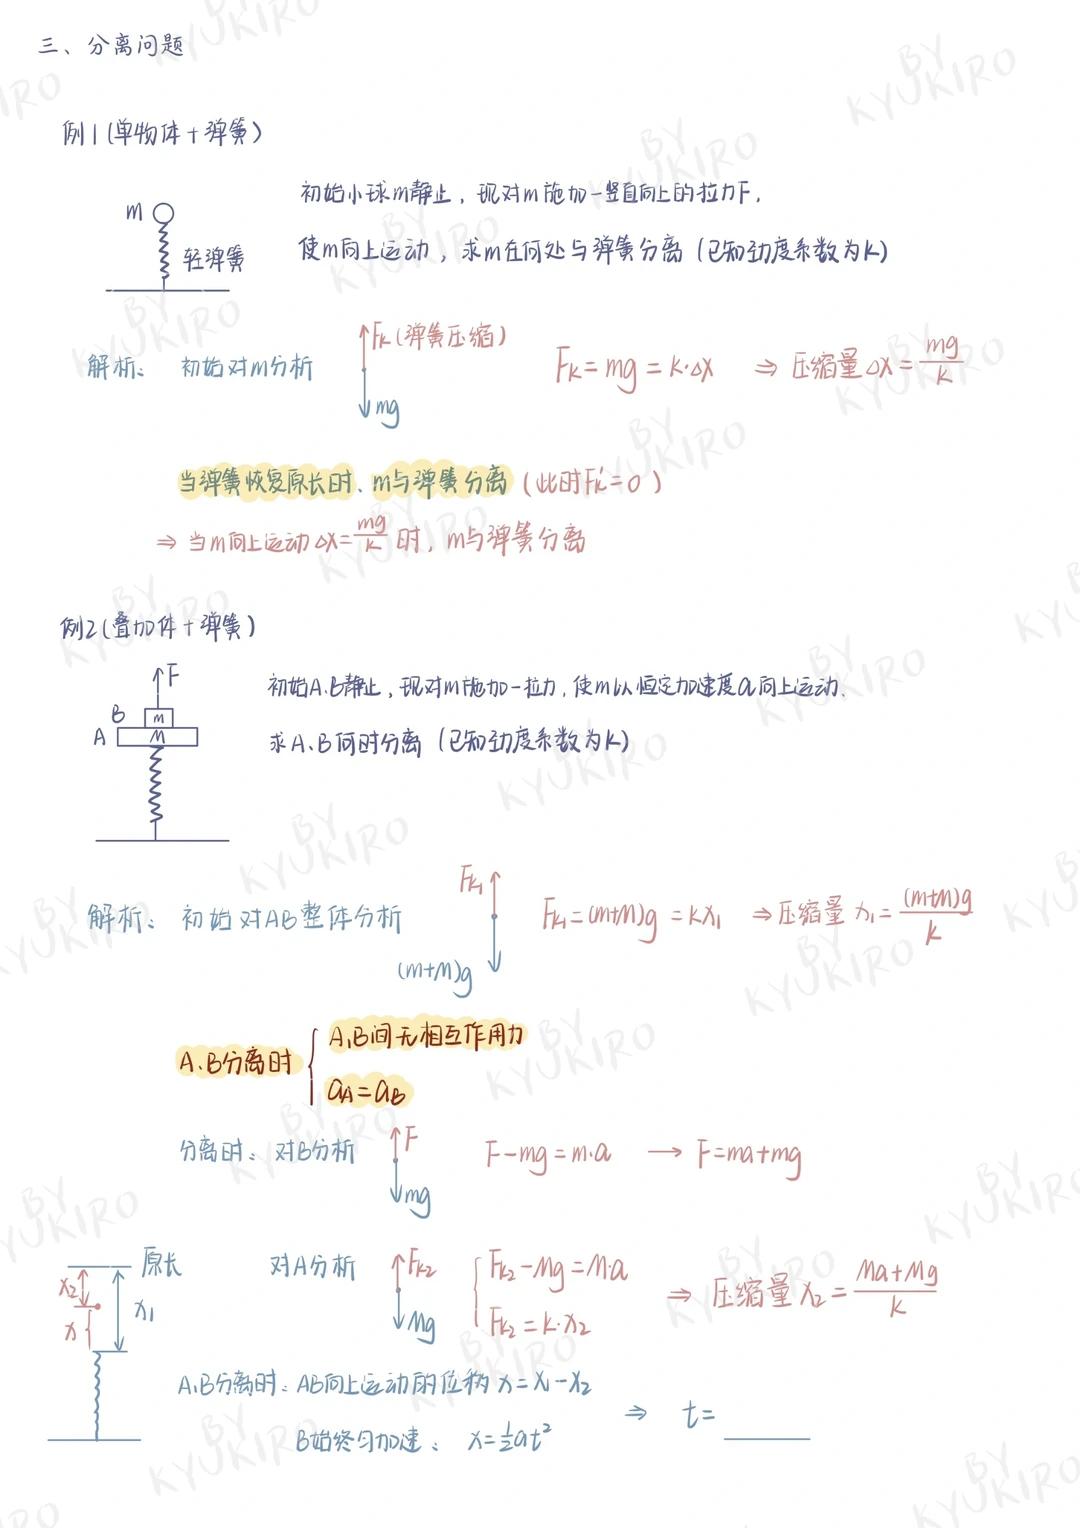 三、分离问题
例1(单物体+弹簧)
初始小球m静止，现对m施加一竖直向上的拉力F，
m
轻弹簧
使m向上运动，求m在何处与弹簧分离(已知劲度系数为k)
解析： 初始对m分析
Fk(弹簧压缩)
mg
Fk=mg=k·△x ⇒ 压缩量△x=mg/k
当弹簧恢复原长时、m与弹簧分离(此时Fk'=0)
⇒ 当m向上运动△x=mg/k时，m与弹簧分离
例2(叠加体+弹簧)
F
B m
A M
初始A.B静止，现对m施加一拉力，使m以恒定加速度a向上运动.
求A、B何时分离(已知劲度系数为k)
解析： 初始对AB整体分析
Fk₁
(m+M)g
Fk₁=(m+M)g=kx₁ ⇒压缩量x₁=(m+M)g/k
A、B分离时
A,B间无相互作用力
aA=aB
分离时： 对B分析
F
mg
F-mg=m·a → F=ma+mg
原长
x₂
x
x₁
对A分析
Fk₂
Mg
Fk₂-Mg=M·a
Fk₂=k·x₂
⇒ 压缩量x₂=Ma+Mg/k
A,B分离时：AB向上运动的位移x=x-x₂
B始终匀加速： x=½at²
⇒ t=____
BY KYUKIRO